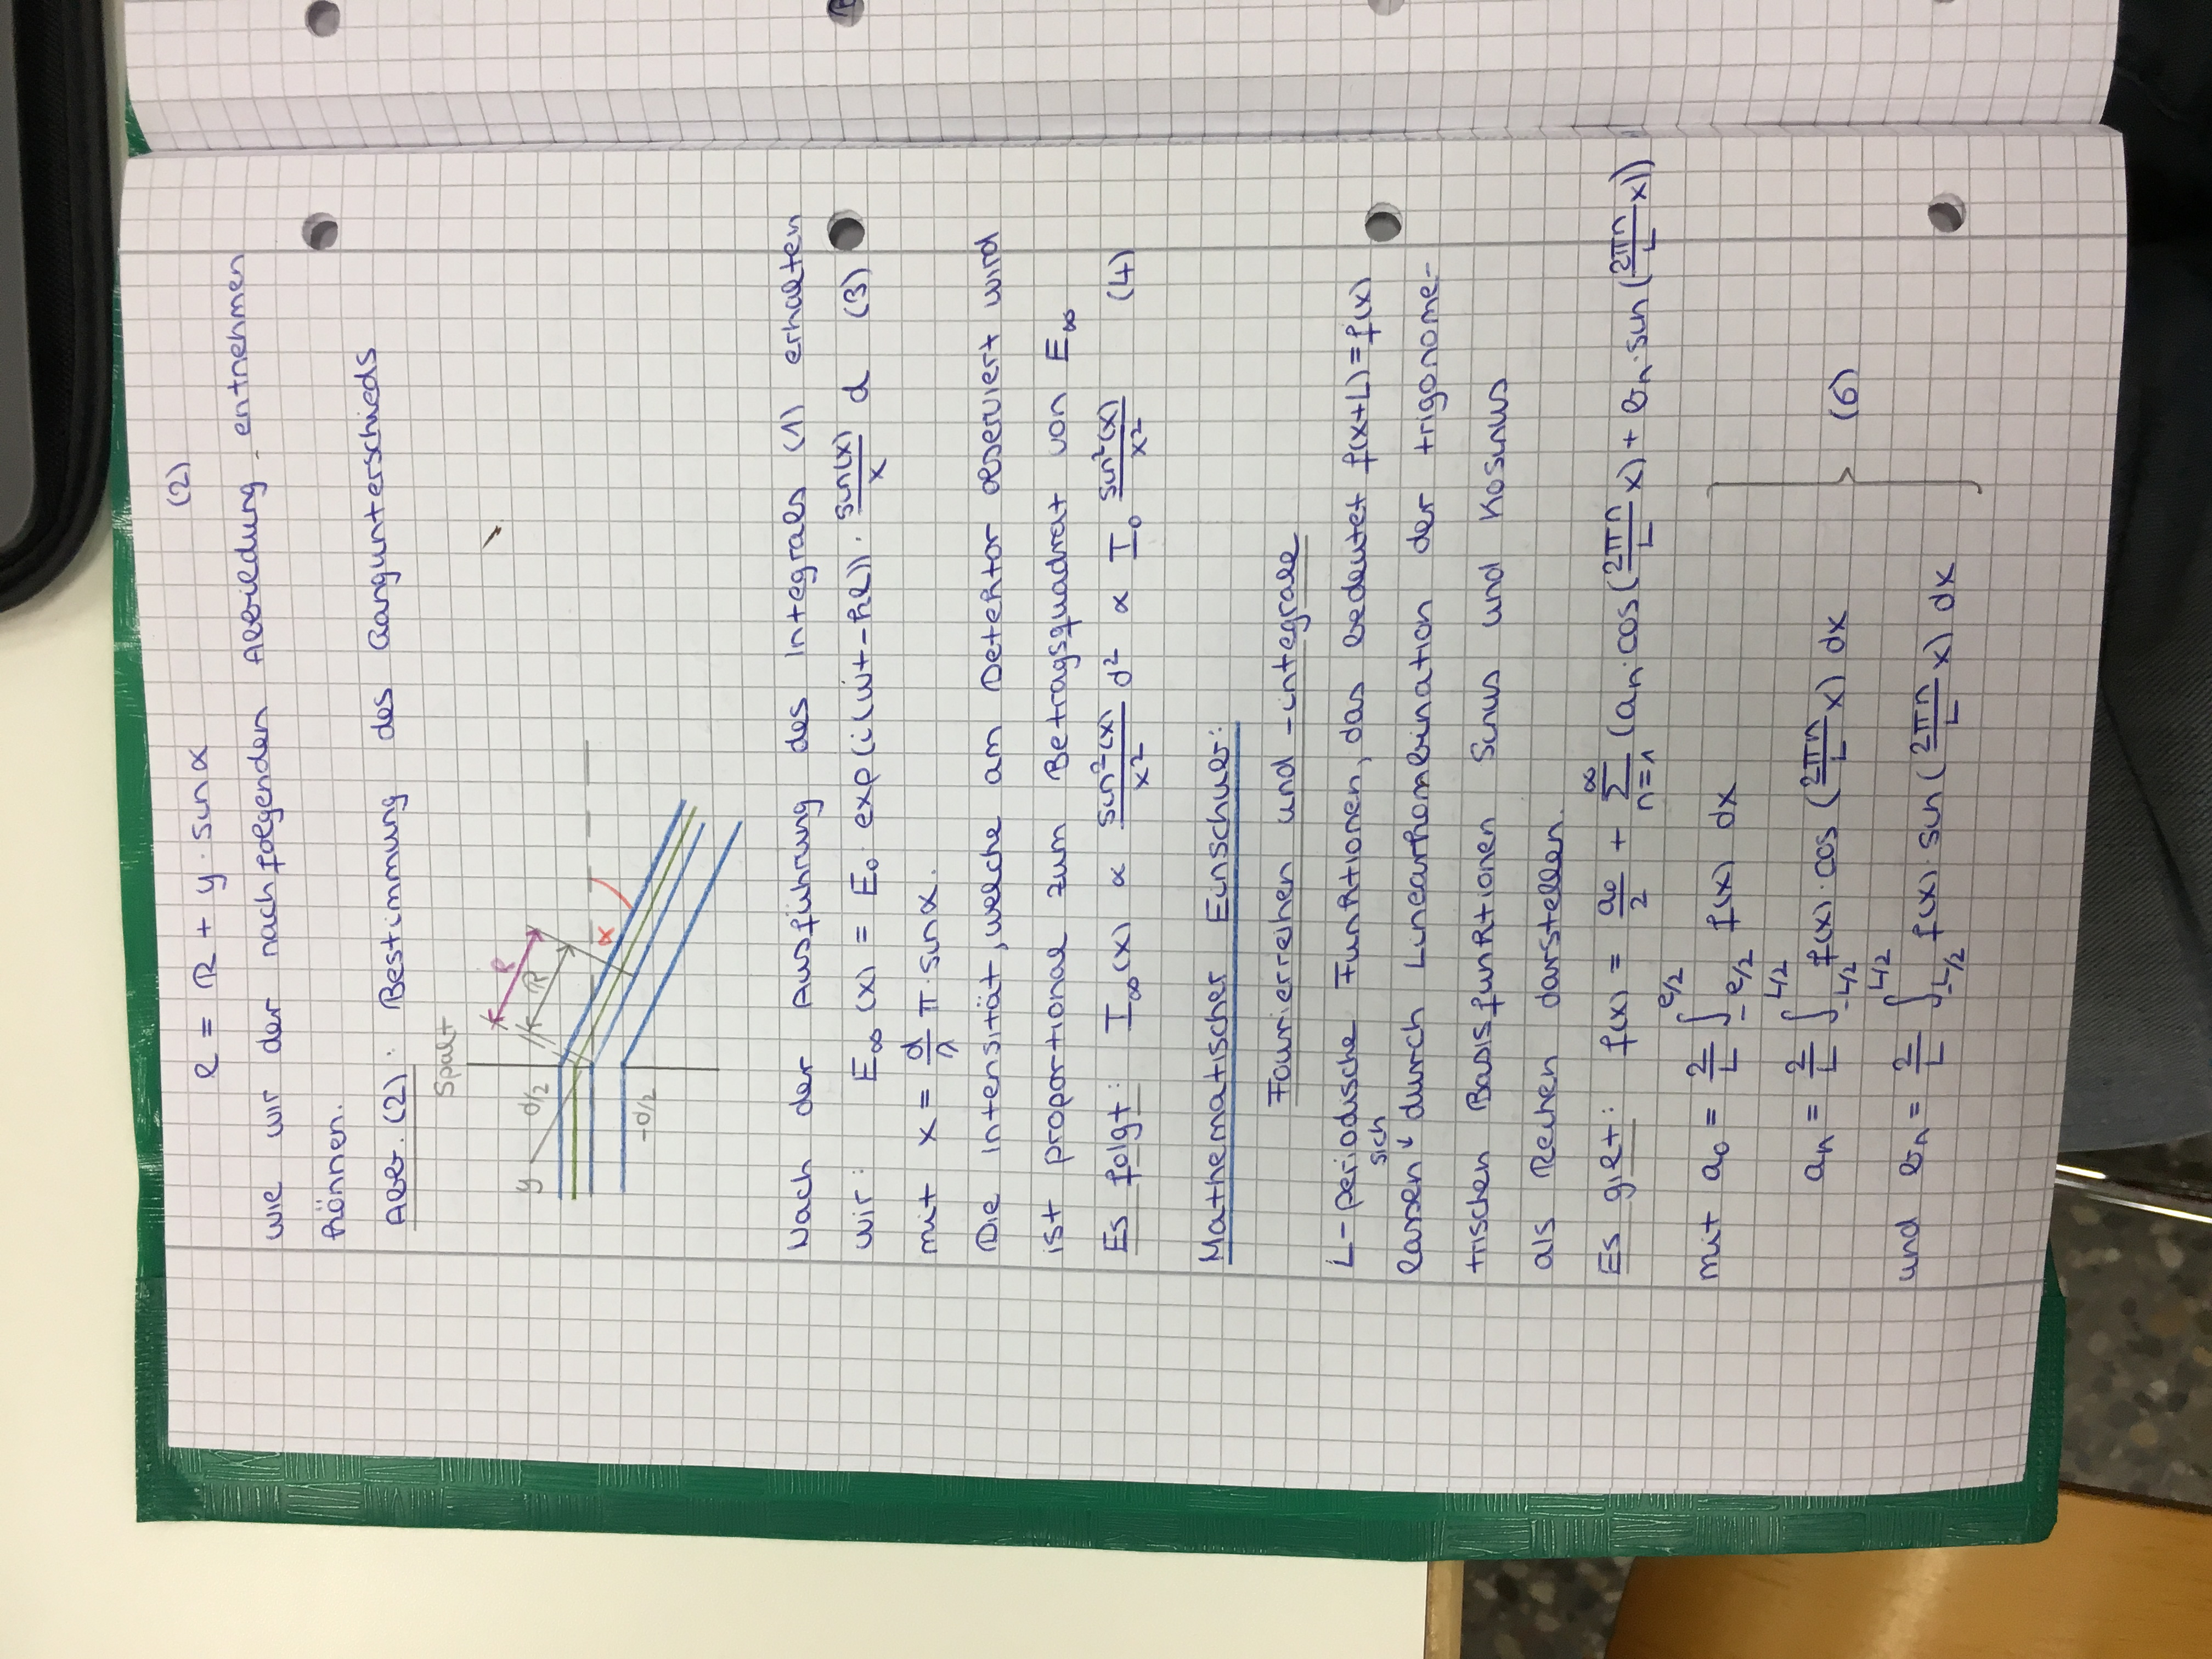 l = R + y · sin α (2)
wie wir der nachfolgenden Abbildung entnehmen
können.
Abb. (2): Bestimmung des Gangunterschieds
Spalt
l
y d/2 R
α
-d/2
Nach der Ausführung des Integrals (1) erhalten
wir: E∞(x) = E₀ · exp(i(ωt - kl)) · sin(x)/x d (3)
mit x = d/λ π · sin α.
Die Intensität, welche am Detektor observiert wird
ist proportional zum Betragsquadrat von E∞
Es folgt: I∞(x) ∝ sin²(x)/x² d² ∝ I₀ sin²(x)/x² (4)
Mathematischer Einschub:
Fourierreihen und -integrale
L-periodische Funktionen, das bedeutet f(x+L) = f(x)
sich
lassen ↓ durch Linearkombination der trigonome-
trischen Basisfunktionen Sinus und Kosinus
als Reihen darstellen.
Es gilt: f(x) = a₀/2 + ∑_{n=1}^{∞} (aₙ · cos(2πn/L x) + bₙ · sin(2πn/L x))
mit a₀ = 2/L ∫_{-l/2}^{l/2} f(x) dx
aₙ = 2/L ∫_{-L/2}^{L/2} f(x) · cos(2πn/L x) dx (6)
und bₙ = 2/L ∫_{-L/2}^{L/2} f(x) · sin(2πn/L x) dx